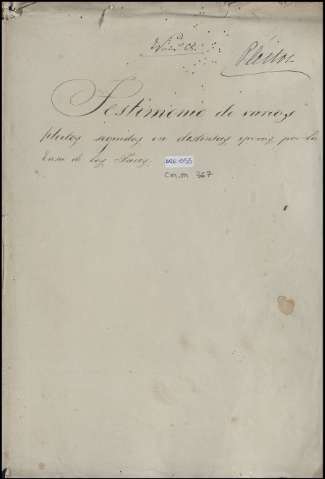 Pleitos
Testimonio de varios
pleitos seguidos en distintas épocas por la
Casa de los
006-055
Com 367